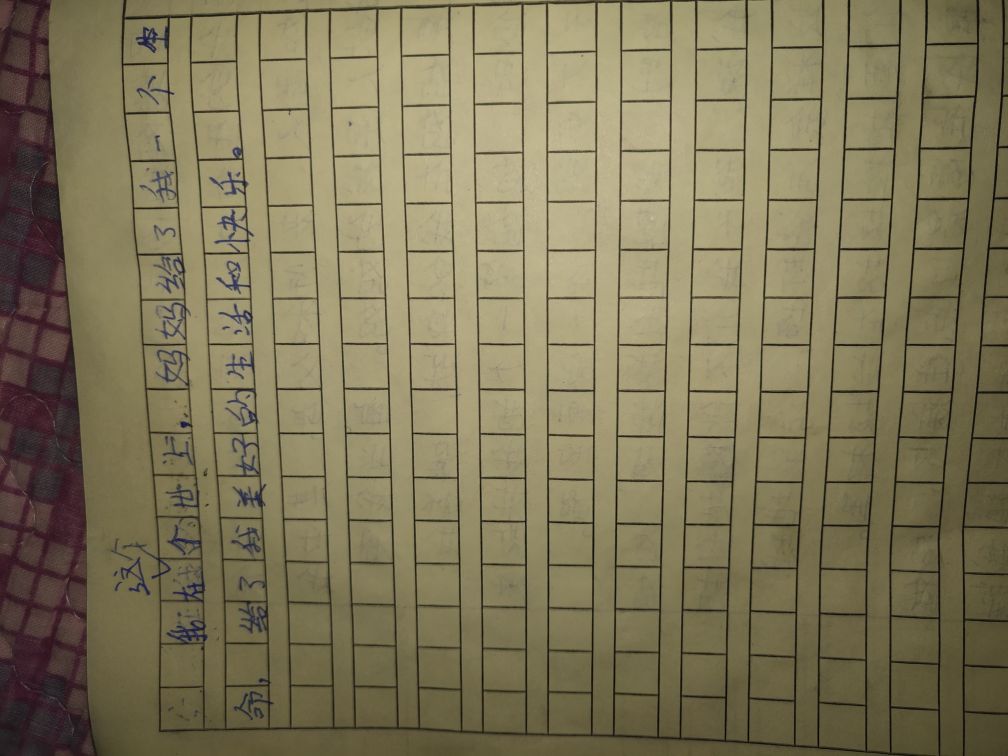 这个
我在世上，妈妈给了我一个生
命，给了我美好的生活和快乐。